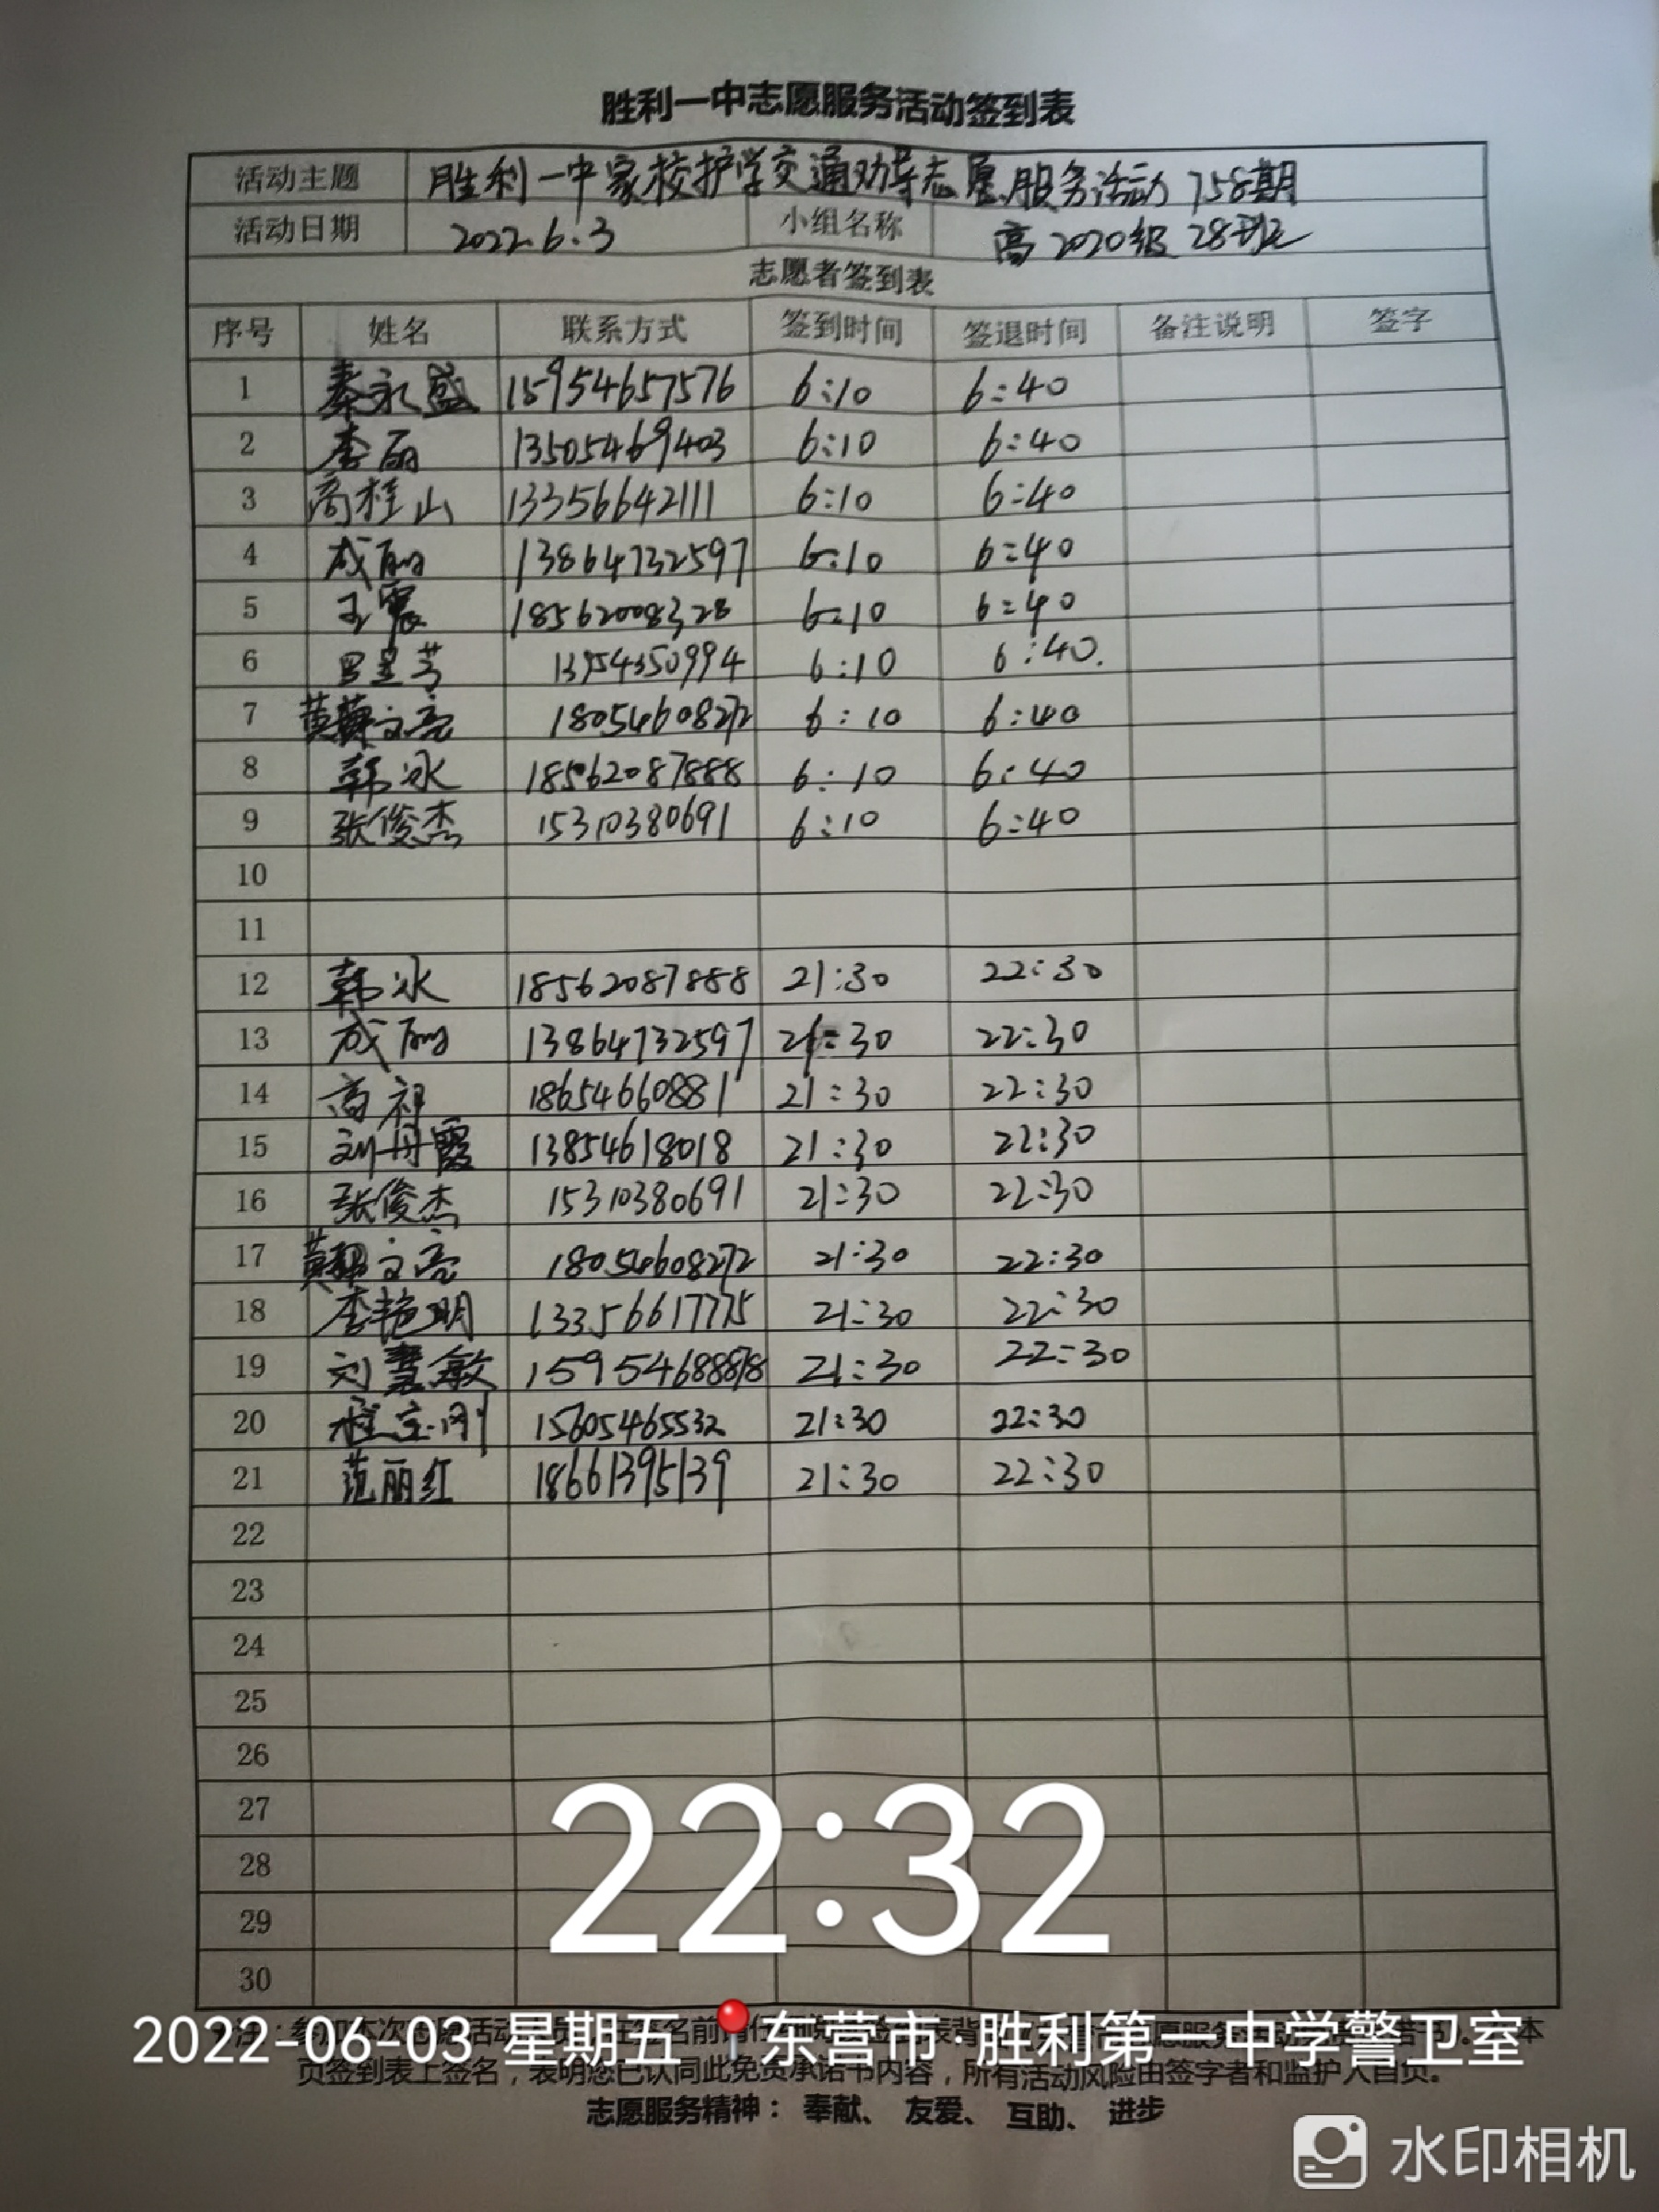 胜利一中志愿服务活动签到表
活动主题 胜利一中家校护学交通劝导志愿服务活动 758期
活动日期 2022.6.3 小组名称 高2020级28班
志愿者签到表
序号 姓名 联系方式 签到时间 签退时间 备注说明 签字
1 秦永盛 15954657576 6:10 6:40
2 李丽 13505469403 6:10 6:40
3 高桂山 13356642111 6:10 6:40
4 成丽 13864732597 6:10 6:40
5 王震 18562008328 6:10 6:40
6 13954350994 6:10 6:40.
7 黄文亮 18054608272 6:10 6:40
8 韩冰 18562087888 6:10 6:40
9 张俊杰 15310380691 6:10 6:40
10
11
12 韩冰 18562087888 21:30 22:30
13 成丽 13864732597 21:30 22:30
14 高 18654660881 21:30 22:30
15 刘丹霞 13854618018 21:30 22:30
16 张俊杰 15310380691 21:30 22:30
17 黄文亮 18054608272 21:30 22:30
18 李艳明 13356617775 21:30 22:30
19 刘慧敏 21:30 22:30
20 程宝刚 15605465532 21:30 22:30
21 范丽红 18661395139 21:30 22:30
22
23
24
25
26
27
28
29
30
22:32
2022-06-03 星期五 东营市·胜利第一中学警卫室
页签到表上签名，表明您已认同此免责承诺书内容，所有活动风险由签字者和监护人自负。
志愿服务精神： 奉献、 友爱、 互助、 进步
水印相机